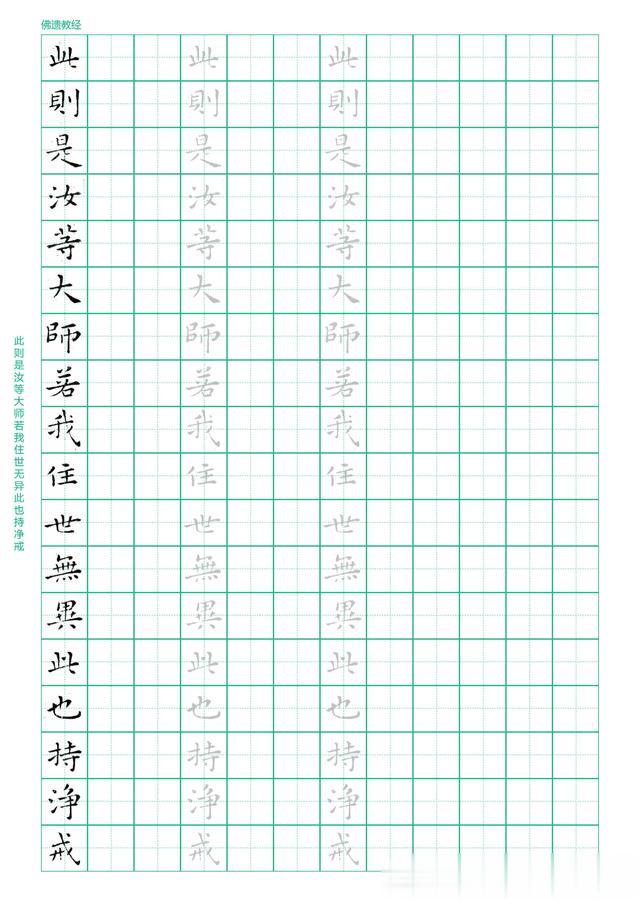 佛遗教经
此则是汝等大师若我住世无异此也持净戒
此則是汝等大師若我住世無異此也持淨戒
此則是汝等大師若我住世無異此也持淨戒
此則是汝等大師若我住世無異此也持淨戒